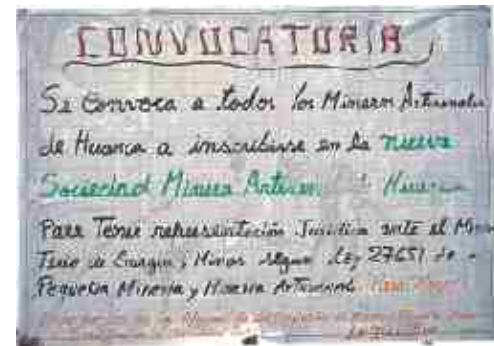 CONVOCATORIA
Se Convoca a todos los Mineros Artesanales
de Huanca a inscribirse en la nueva
Sociedad Minera Artesanal Huanca
Para Tener representación Juridica ante el Minis
Terio de Energia y Minas segun Ley 27651 de
Pequeña Mineria y Mineria Artesanal